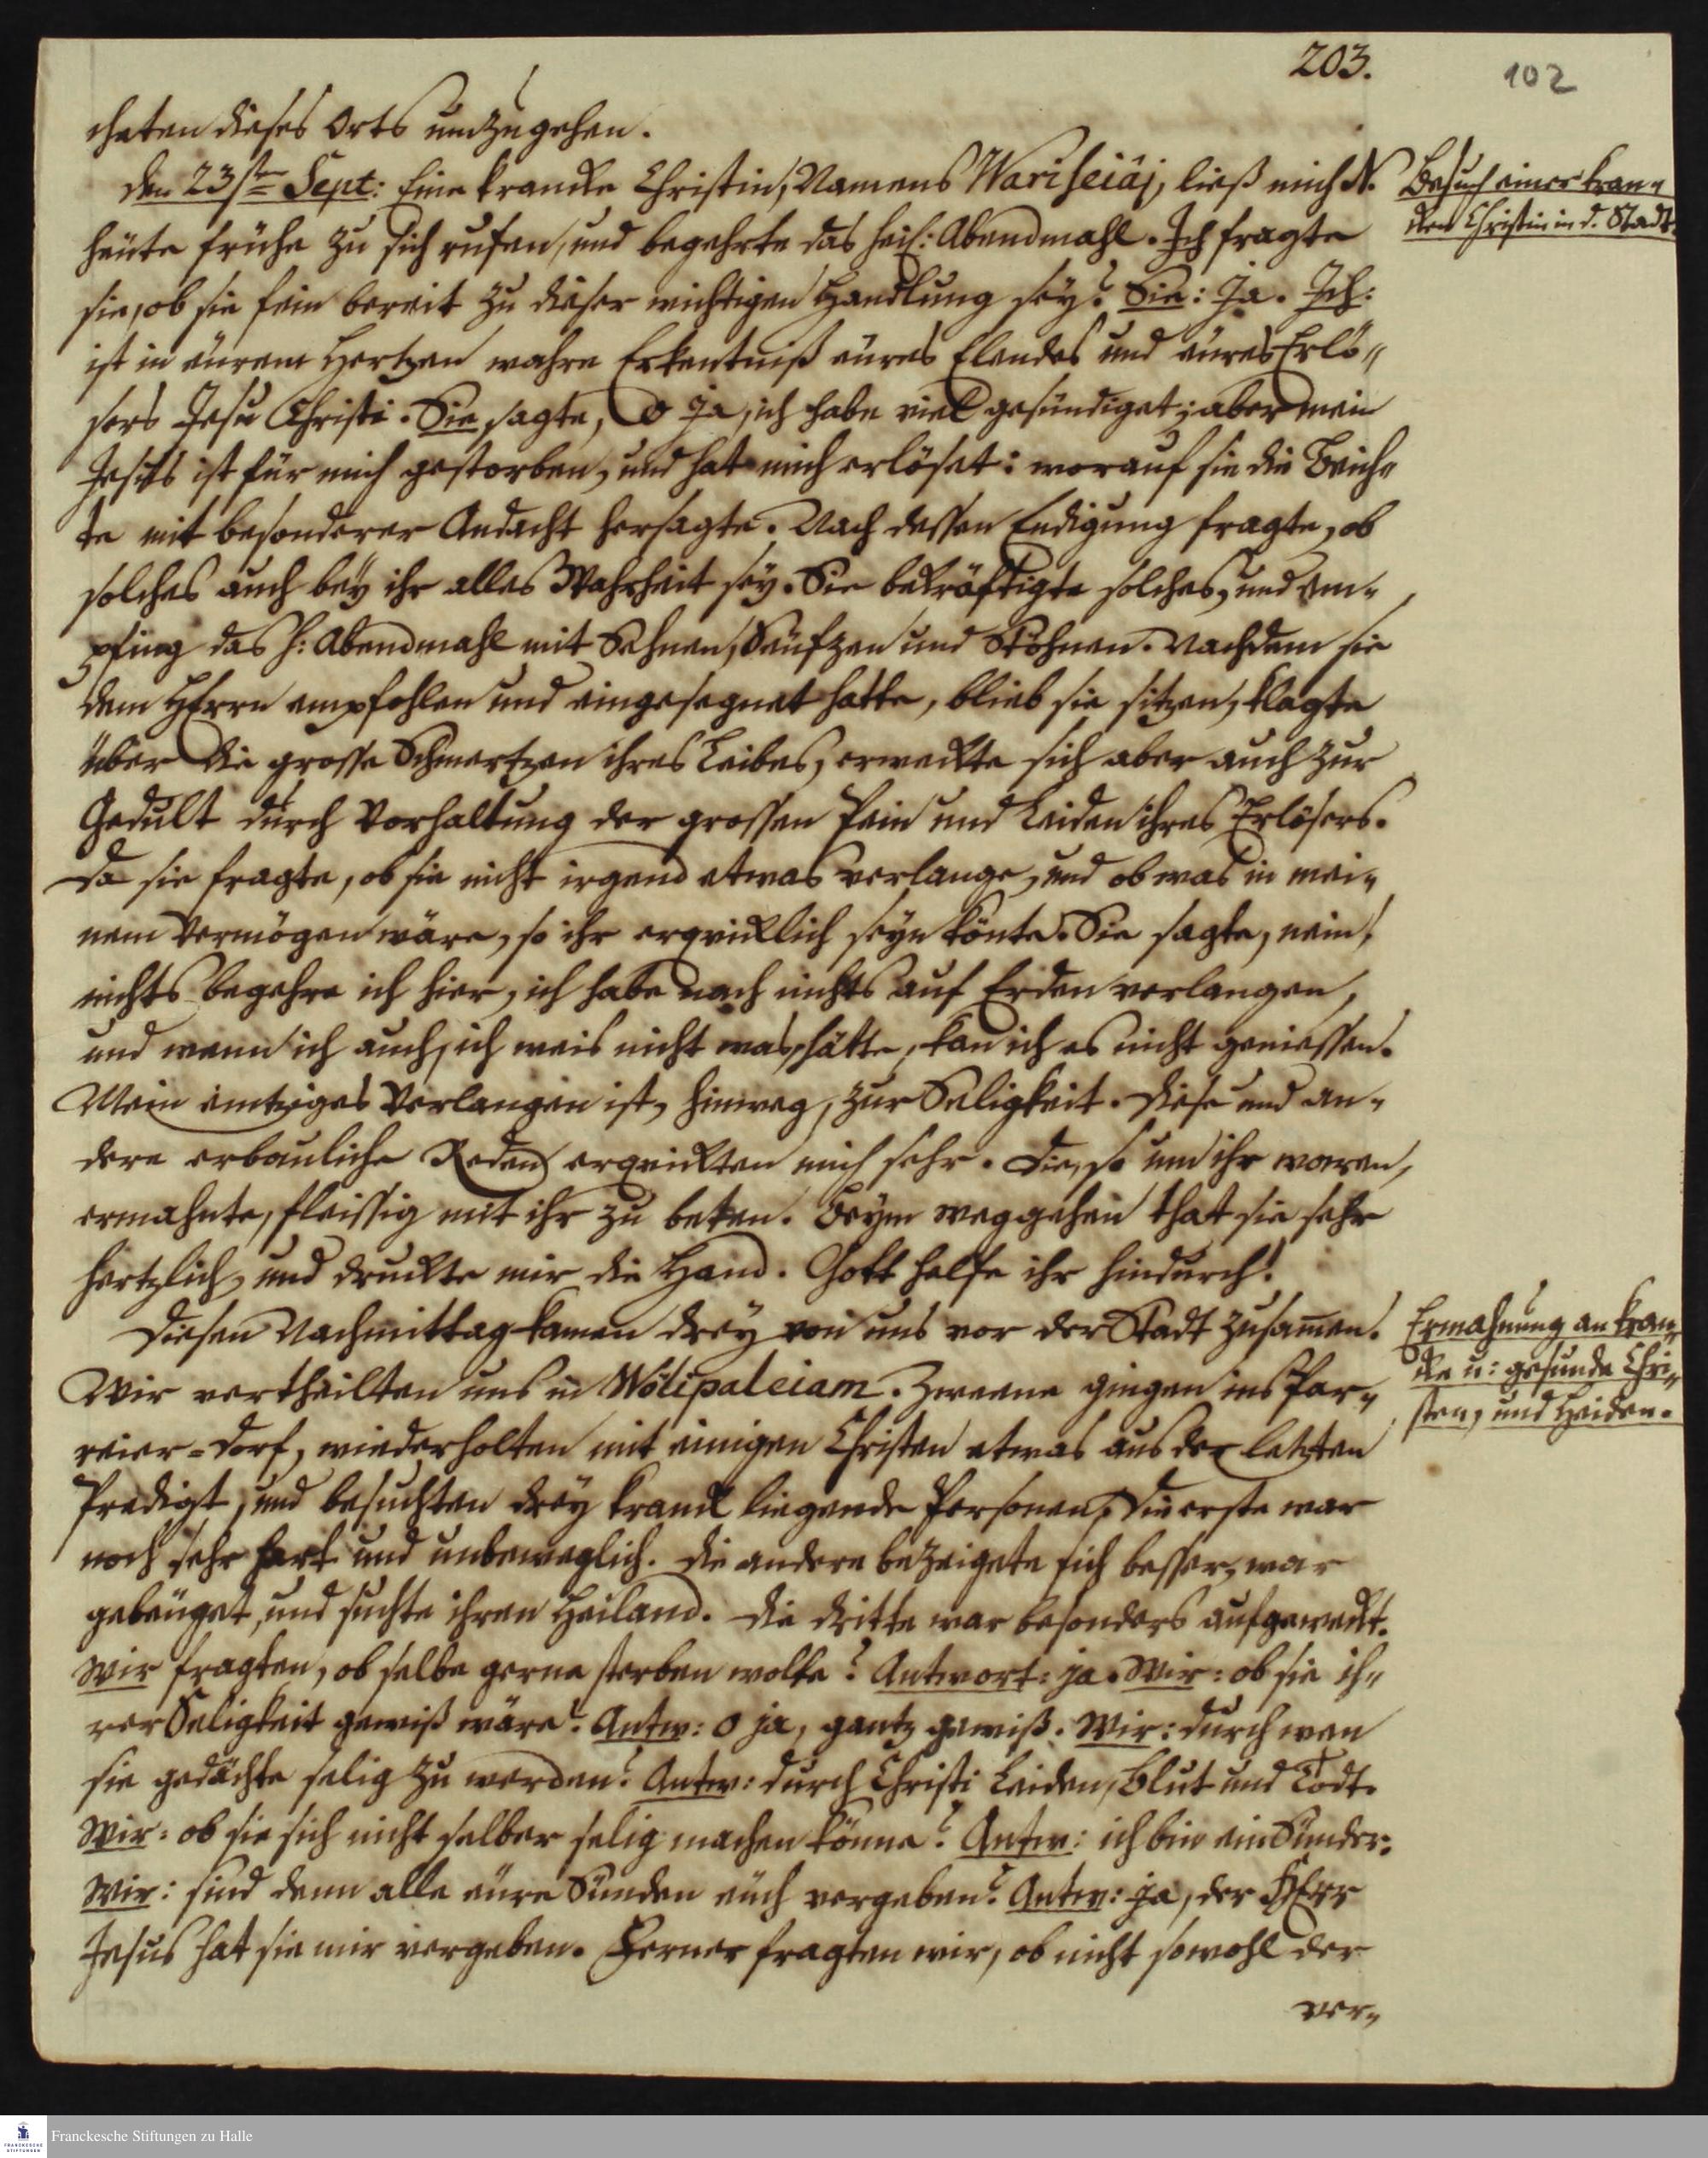 203.
102
chaten dieses Orts umzugehen.
den 23st= Sept: Eine krancke Christin, Namens Wariseiäj, ließ mich N.
heüte frühe zu sich rufen, und begehrte das heil: Abendmahl. Ich fragte
sie, ob sie fein bereit zu dieser wichtigen Handlung seÿ? Sie: Ja. Ich:
ist in eürem Hertzen wahre Erkentniß eüres Elendes und eüres Erlö-
sers Jesu Christi. Sie sagte, O ja, ich habe viel gesündiget; aber mein
Jesus ist für mich gestorben, und hat mich erlöset: worauf sie die Beich-
te mit besonderer Andacht hersagte. Nach dessen Endigung fragte, ob
solches auch beÿ ihr alles Wahrheit seÿ. Sie bekräftigte solches, und em-
pfing das h: Abendmahl mit Sehnen, Seüfzen und Stöhnen. Nachdem sie
dem HErrn empfohlen und eingesegnet hatte, blieb sie sitzen, klagte
über die grosse Schmertzen ihres Leibes, erweckte sich aber auch zur
Gedult durch Vorhaltung der grossen Pein und Leiden ihres Erlösers.
Da sie fragte, ob sie nicht irgend etwas verlange, und ob was in mei-
nem Vermögen wäre, so ihr erqvicklich seÿn könte. Sie sagte, nein,
nichts begehre ich hier, ich habe nach nichts auf Erden verlangen,
und wenn ich auch, ich weis nicht was, hätte, kan ich es nicht geniessen.
Mein eintziges Verlangen ist, hinweg, zur Seligkeit. Diese und an-
dere erbauliche Reden erqvickten mich sehr. Die, so um ihr waren,
ermahnte, fleissig mit ihr zu beten. Beÿm weggehen that sie sehr
hertzlich, und druckte mir die Hand. Gott helfe ihr hindurch!
Diesen Nachmittag kamen dreÿ von uns vor der Stadt zusam̅en.
Wir vertheilten uns in Wölipaleiam. Zweene gingen ins Par-
reier=Dorf, wiederholten mit einigen Christen etwas aus der letzten
Predigt, und besuchten dreÿ kranck liegende Personen. Die erste war
noch sehr hart und unbeweglich. Die andere bezeigete sich besser, war
gebeüget, und suchte ihren Heiland. Die dritte war besonders aufgeweckt.
Wir fragten, ob selbe gerne sterben wolte? Antwort: ja. Wir: ob sie ih-
rer Seligkeit gewiß wäre? Antw: O ja, gantz gewiß. Wir: durch wen
sie gedächte selig zu werden? Antw: durch Christi Leiden, Blut und Todt.
Wir: ob sie sich nicht selber selig machen könne? Antw: ich bin ein Sünder.
Wir: sind denn alle eüre Sünden eüch vergeben? Antw: ja, der HErr
Jesus hat sie mir vergeben. Ferner fragten wir, ob nicht sowohl der
ver-
Besuch einer kran-
cken Christin in d. Stadt.
Ermahnung an kran-
cke u: gesunde Chri-
sten, und Heiden.
Franckesche Stiftungen zu Halle
FRANCKESCHE
STIFTUNGEN